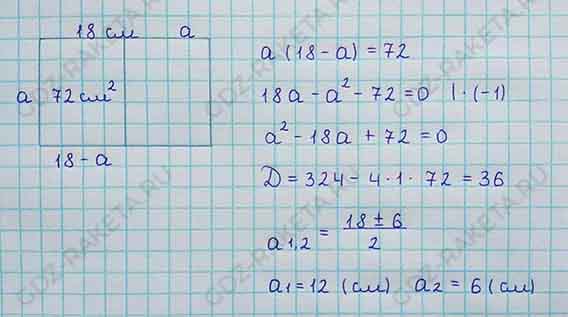 18 см a
a 72 см²
18 - a
a (18 - a) = 72
18a - a² - 72 = 0 | · (-1)
a² - 18a + 72 = 0
D = 324 - 4 · 1 · 72 = 36
a₁,₂ = (18 ± 6) / 2
a₁ = 12 (см) a₂ = 6 (см)
GDZ-RAKETA.RU